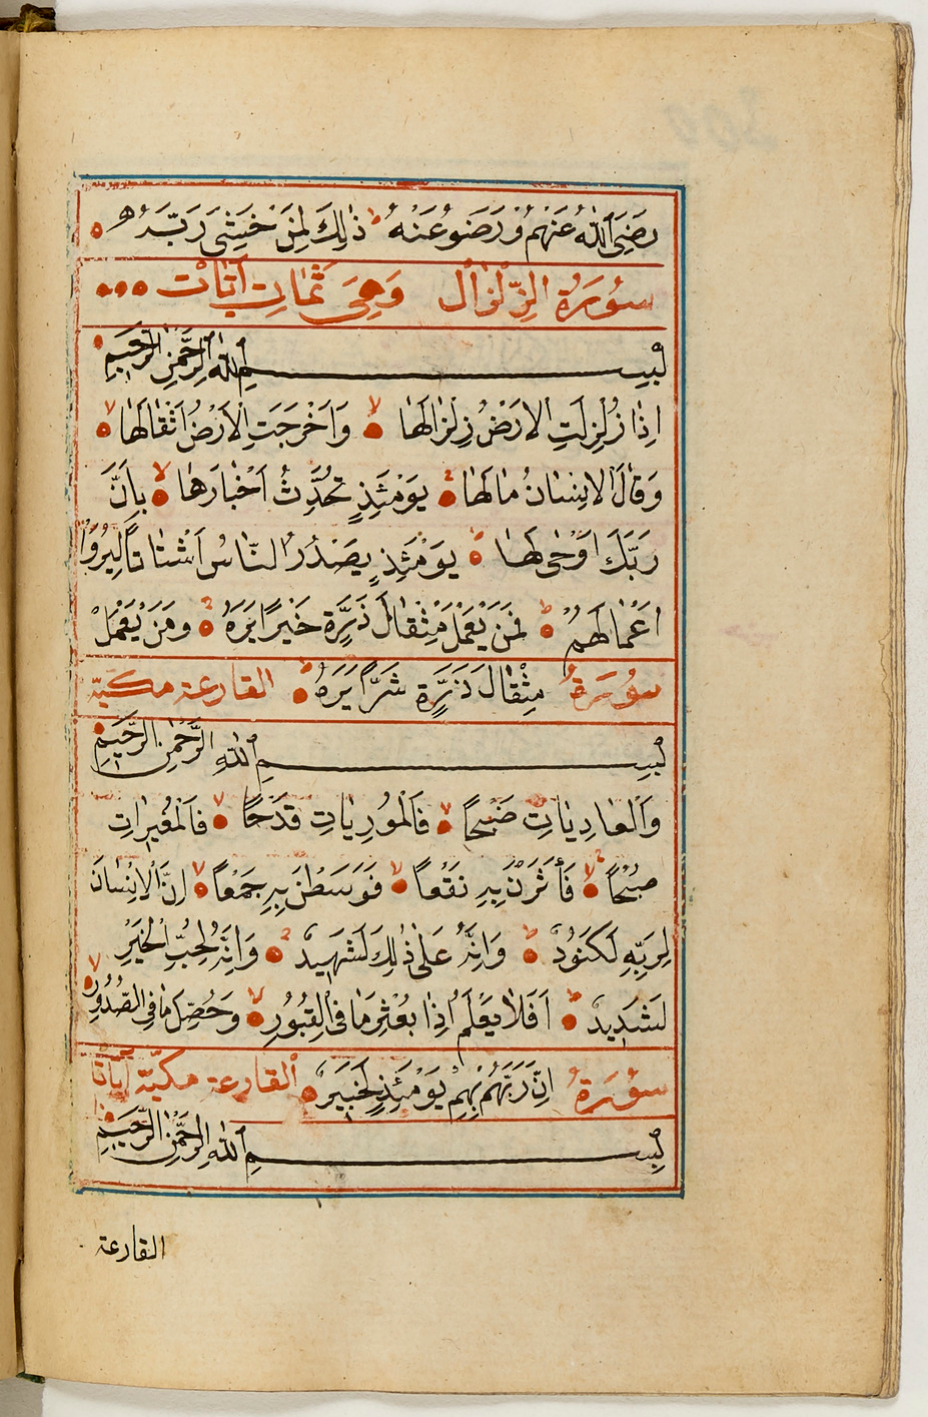 رَضِيَ اللّٰهُ عَنْهُمْ وَرَضُوعَنْهُ ط ذٰلِكَ لِمَنْ خَشِيَ رَبَّهُ
سُورَةُ الزِّلْزَالْ وَهِيَ ثَمَانِ آيَاتْ
بِسْمِ اللّٰهِ الرَّحْمٰنِ الرَّحِيمِ
اِذَا زُلْزِلَتِ الْاَرْضُ زِلْزَالَهَا لا وَاَخْرَجَتِ الْاَرْضُ اَثْقَالَهَا لا
وَقَالَ الْاِنْسَانُ مَالَهَا ج يَوْمَئِذٍ تُحَدِّثُ اَخْبَارَهَا لا بِاَنَّ
رَبَّكَ اَوْحٰى لَهَا ط يَوْمَئِذٍ يَصْدُرُ النَّاسُ اَشْتَاتًا لِيُرَوْا
اَعْمَالَهُمْ ط فَمَنْ يَعْمَلْ مِثْقَالَ ذَرَّةٍ خَيْرًا يَرَهُ ج وَمَنْ يَعْمَلْ
سُورَةُ مِثْقَالَ ذَرَّةٍ شَرًّا يَرَهُ القارعة مكيّة
بِسْمِ اللّٰهِ الرَّحْمٰنِ الرَّحِيمِ
وَالْعَادِيَاتِ ضَبْحًا لا فَالْمُورِيَاتِ قَدْحًا لا فَالْمُغِيرَاتِ
صُبْحًا لا فَأَثَرْنَ بِهِ نَقْعًا لا فَوَسَطْنَ بِهِ جَمْعًا لا اِنَّ الْاِنْسَانَ
لِرَبِّهِ لَكَنُودٌ ج وَاِنَّهُ عَلٰى ذٰلِكَ لَشَهِيدٌ ج وَاِنَّهُ لِحُبِّ الْخَيْرِ
لَشَدِيدٌ ط اَفَلَا يَعْلَمُ اِذَا بُعْثِرَ مَا فِي الْقُبُورِ لا وَحُصِّلَ مَا فِي الصُّدُورِ لا
سُورَةُ اِنَّ رَبَّهُمْ بِهِمْ يَوْمَئِذٍ لَخَبِيرٌ القارعة مكيّة
بِسْمِ اللّٰهِ الرَّحْمٰنِ الرَّحِيمِ
القارعة